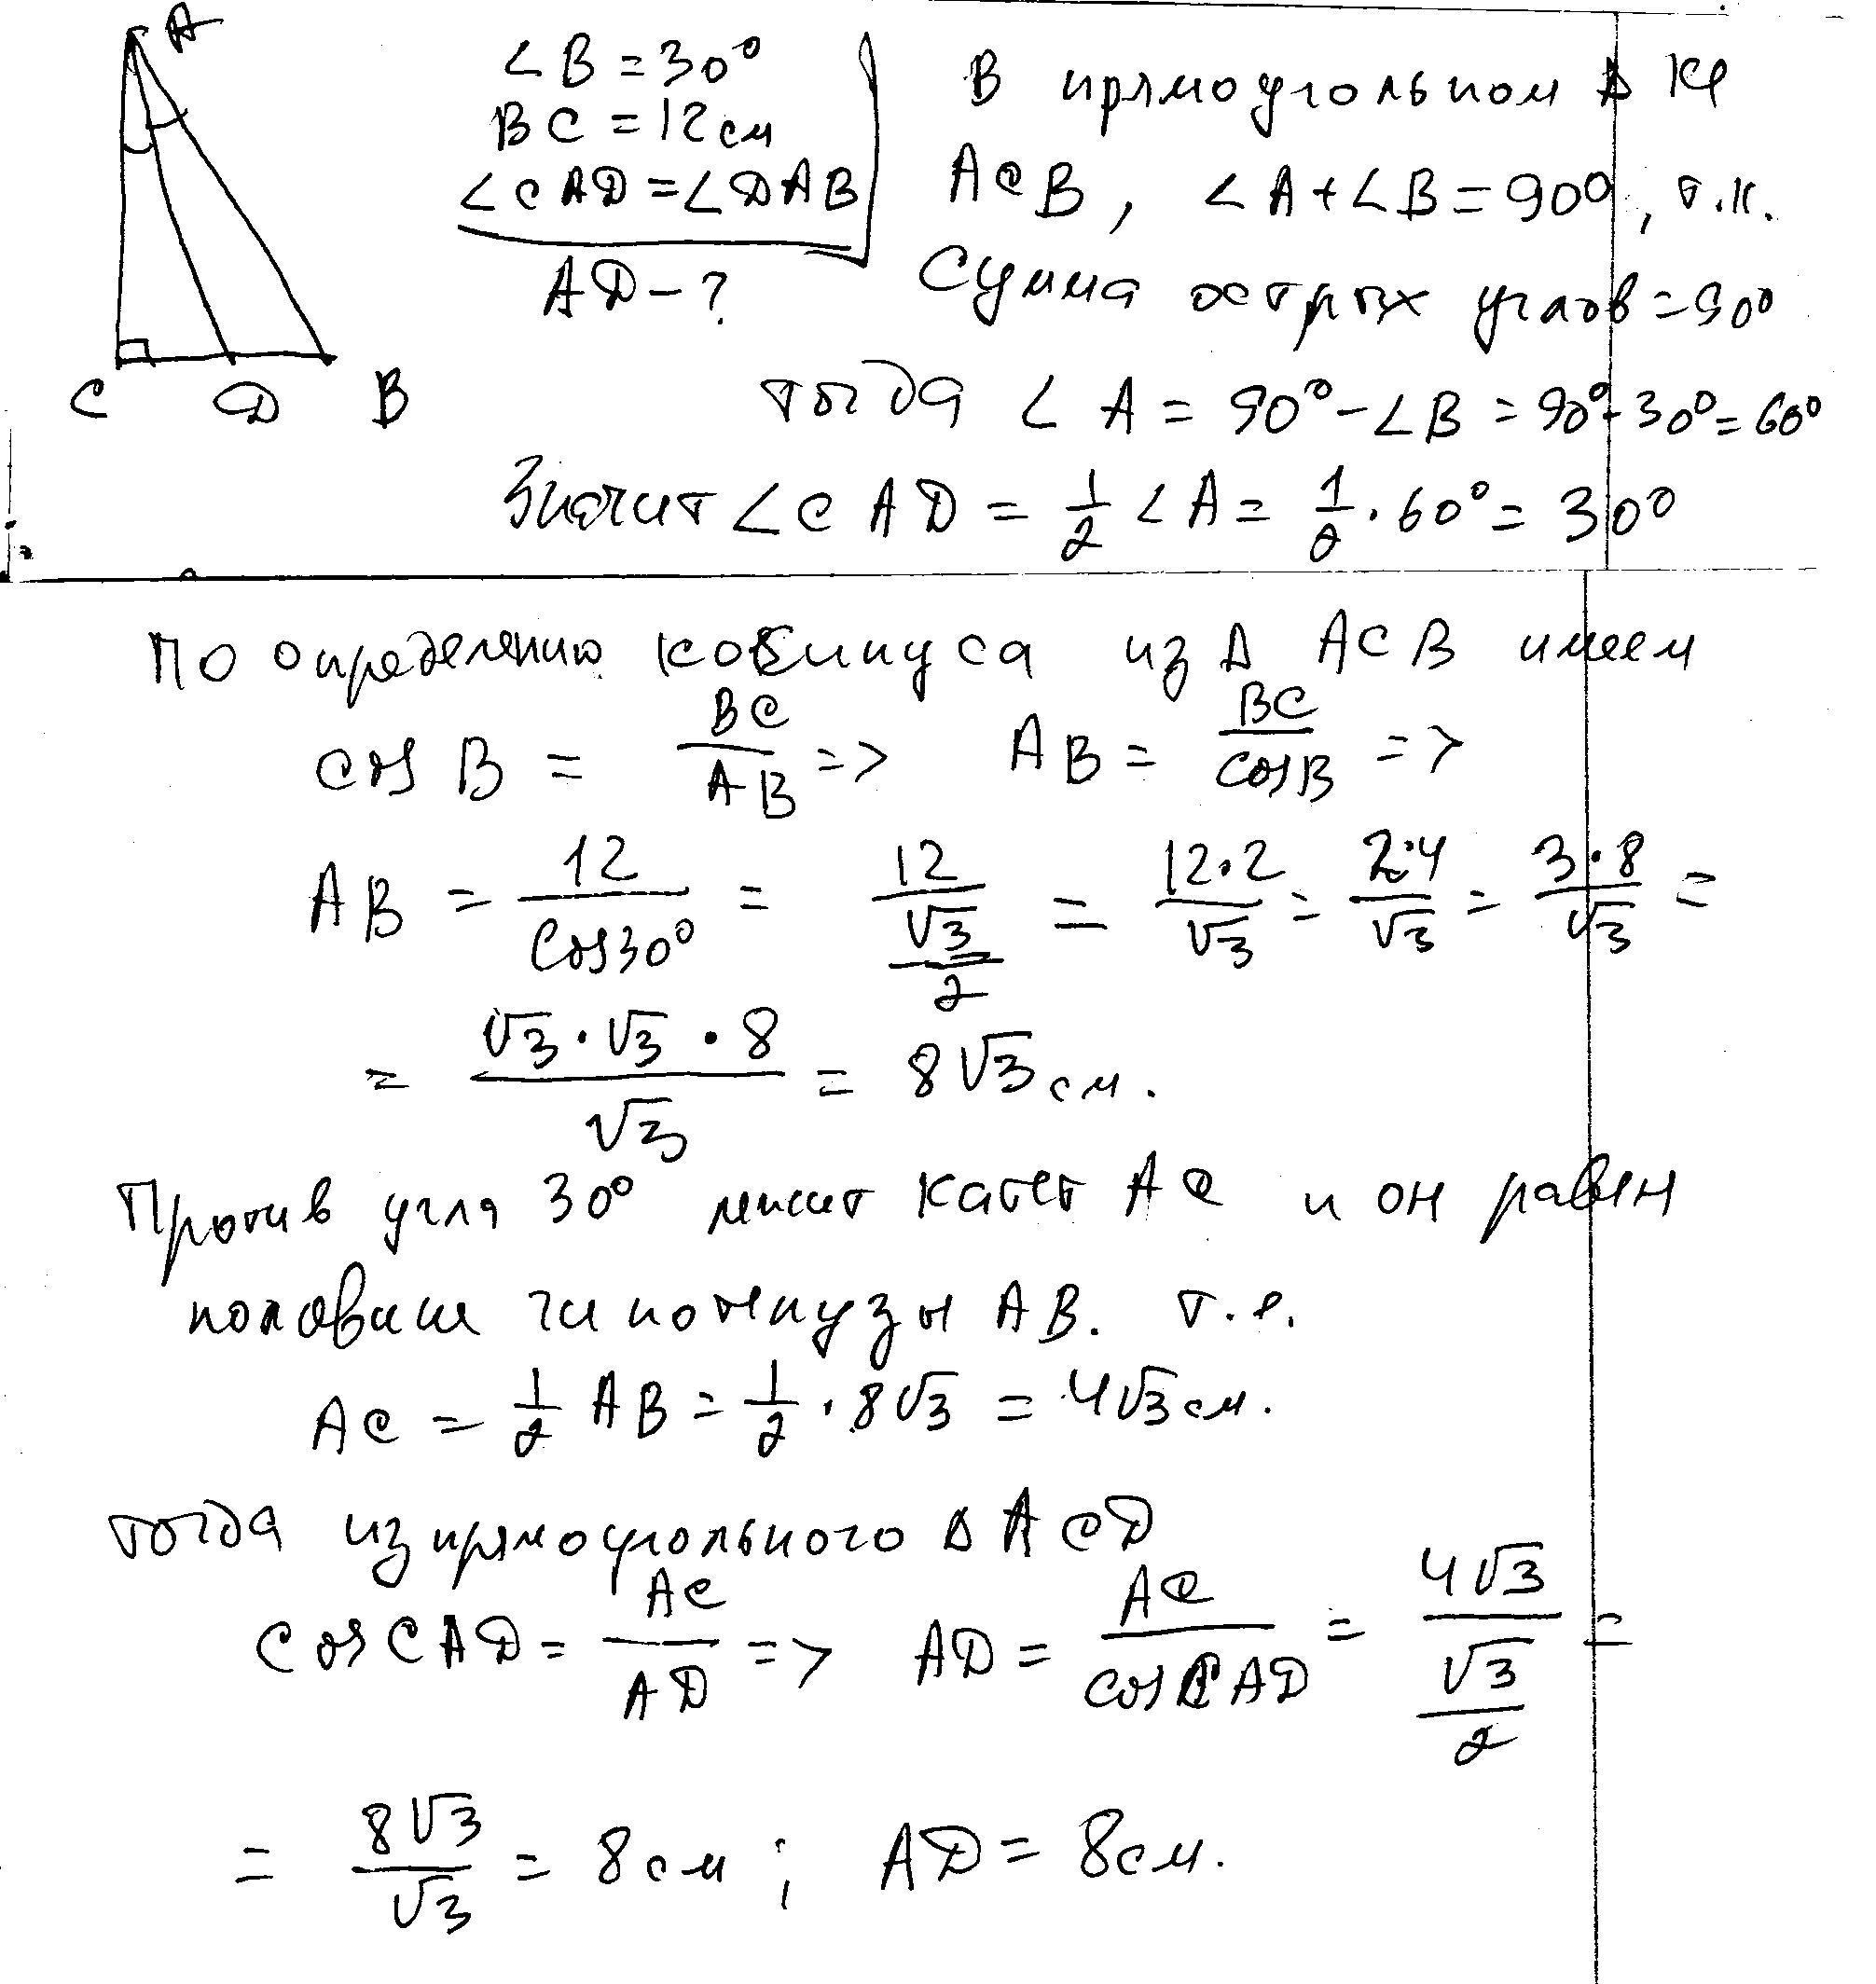 A
C D B
∠B = 30°
BC = 12 см
∠CAD = ∠DAB
AD - ?
В прямоугольном Δ
ACB, ∠A + ∠B = 90°, т.к.
сумма острых углов = 90°
тогда ∠A = 90° - ∠B = 90° - 30° = 60°
Значит ∠CAD = 1/2 ∠A = 1/2 · 60° = 30°
По определению косинуса из Δ ACB имеем
cos B = BC/AB => AB = BC/cosB =>
AB = 12/cos30° = 12/(√3/2) = 12·2/√3 = 2·4/√3 = 3·8/√3 =
= √3·√3·8/√3 = 8√3 см.
Против угла 30° лежит катет AC и он равен
половине гипотенузы AB. т.е.
AC = 1/2 AB = 1/2 · 8√3 = 4√3 см.
тогда из прямоугольного Δ ACD
cos CAD = AC/AD => AD = AC/cos CAD = 4√3/(√3/2) =
= 8√3/√3 = 8 см; AD = 8 см.